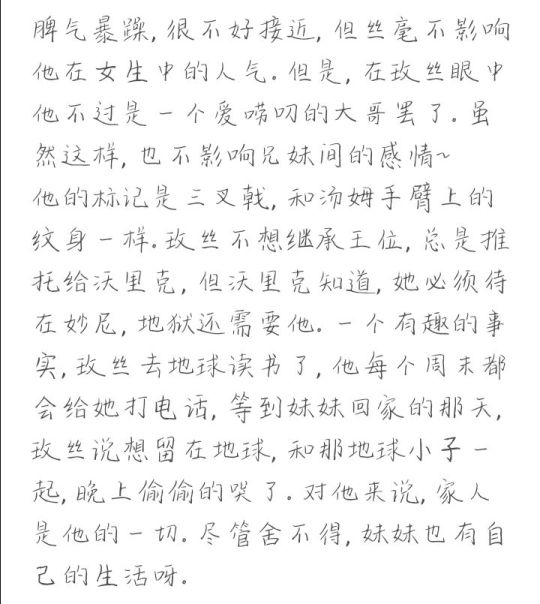 脾气暴躁, 很不好接近, 但丝毫不影响
他在女生中的人气. 但是, 在玫丝眼中
他不过是一个爱唠叨的大哥罢了. 虽
然这样, 也不影响兄妹间的感情~
他的标记是三叉戟, 和汤姆手臂上的
纹身一样. 玫丝不想继承王位, 总是推
托给沃里克, 但沃里克知道, 她必须待
在妙尼, 地狱还需要他. 一个有趣的事
实, 玫丝去地球读书了, 他每个周末都
会给她打电话, 等到妹妹回家的那天,
玫丝说想留在地球, 和那地球小子一
起, 晚上偷偷的哭了. 对他来说, 家人
是他的一切. 尽管舍不得, 妹妹也有自
己的生活呀.